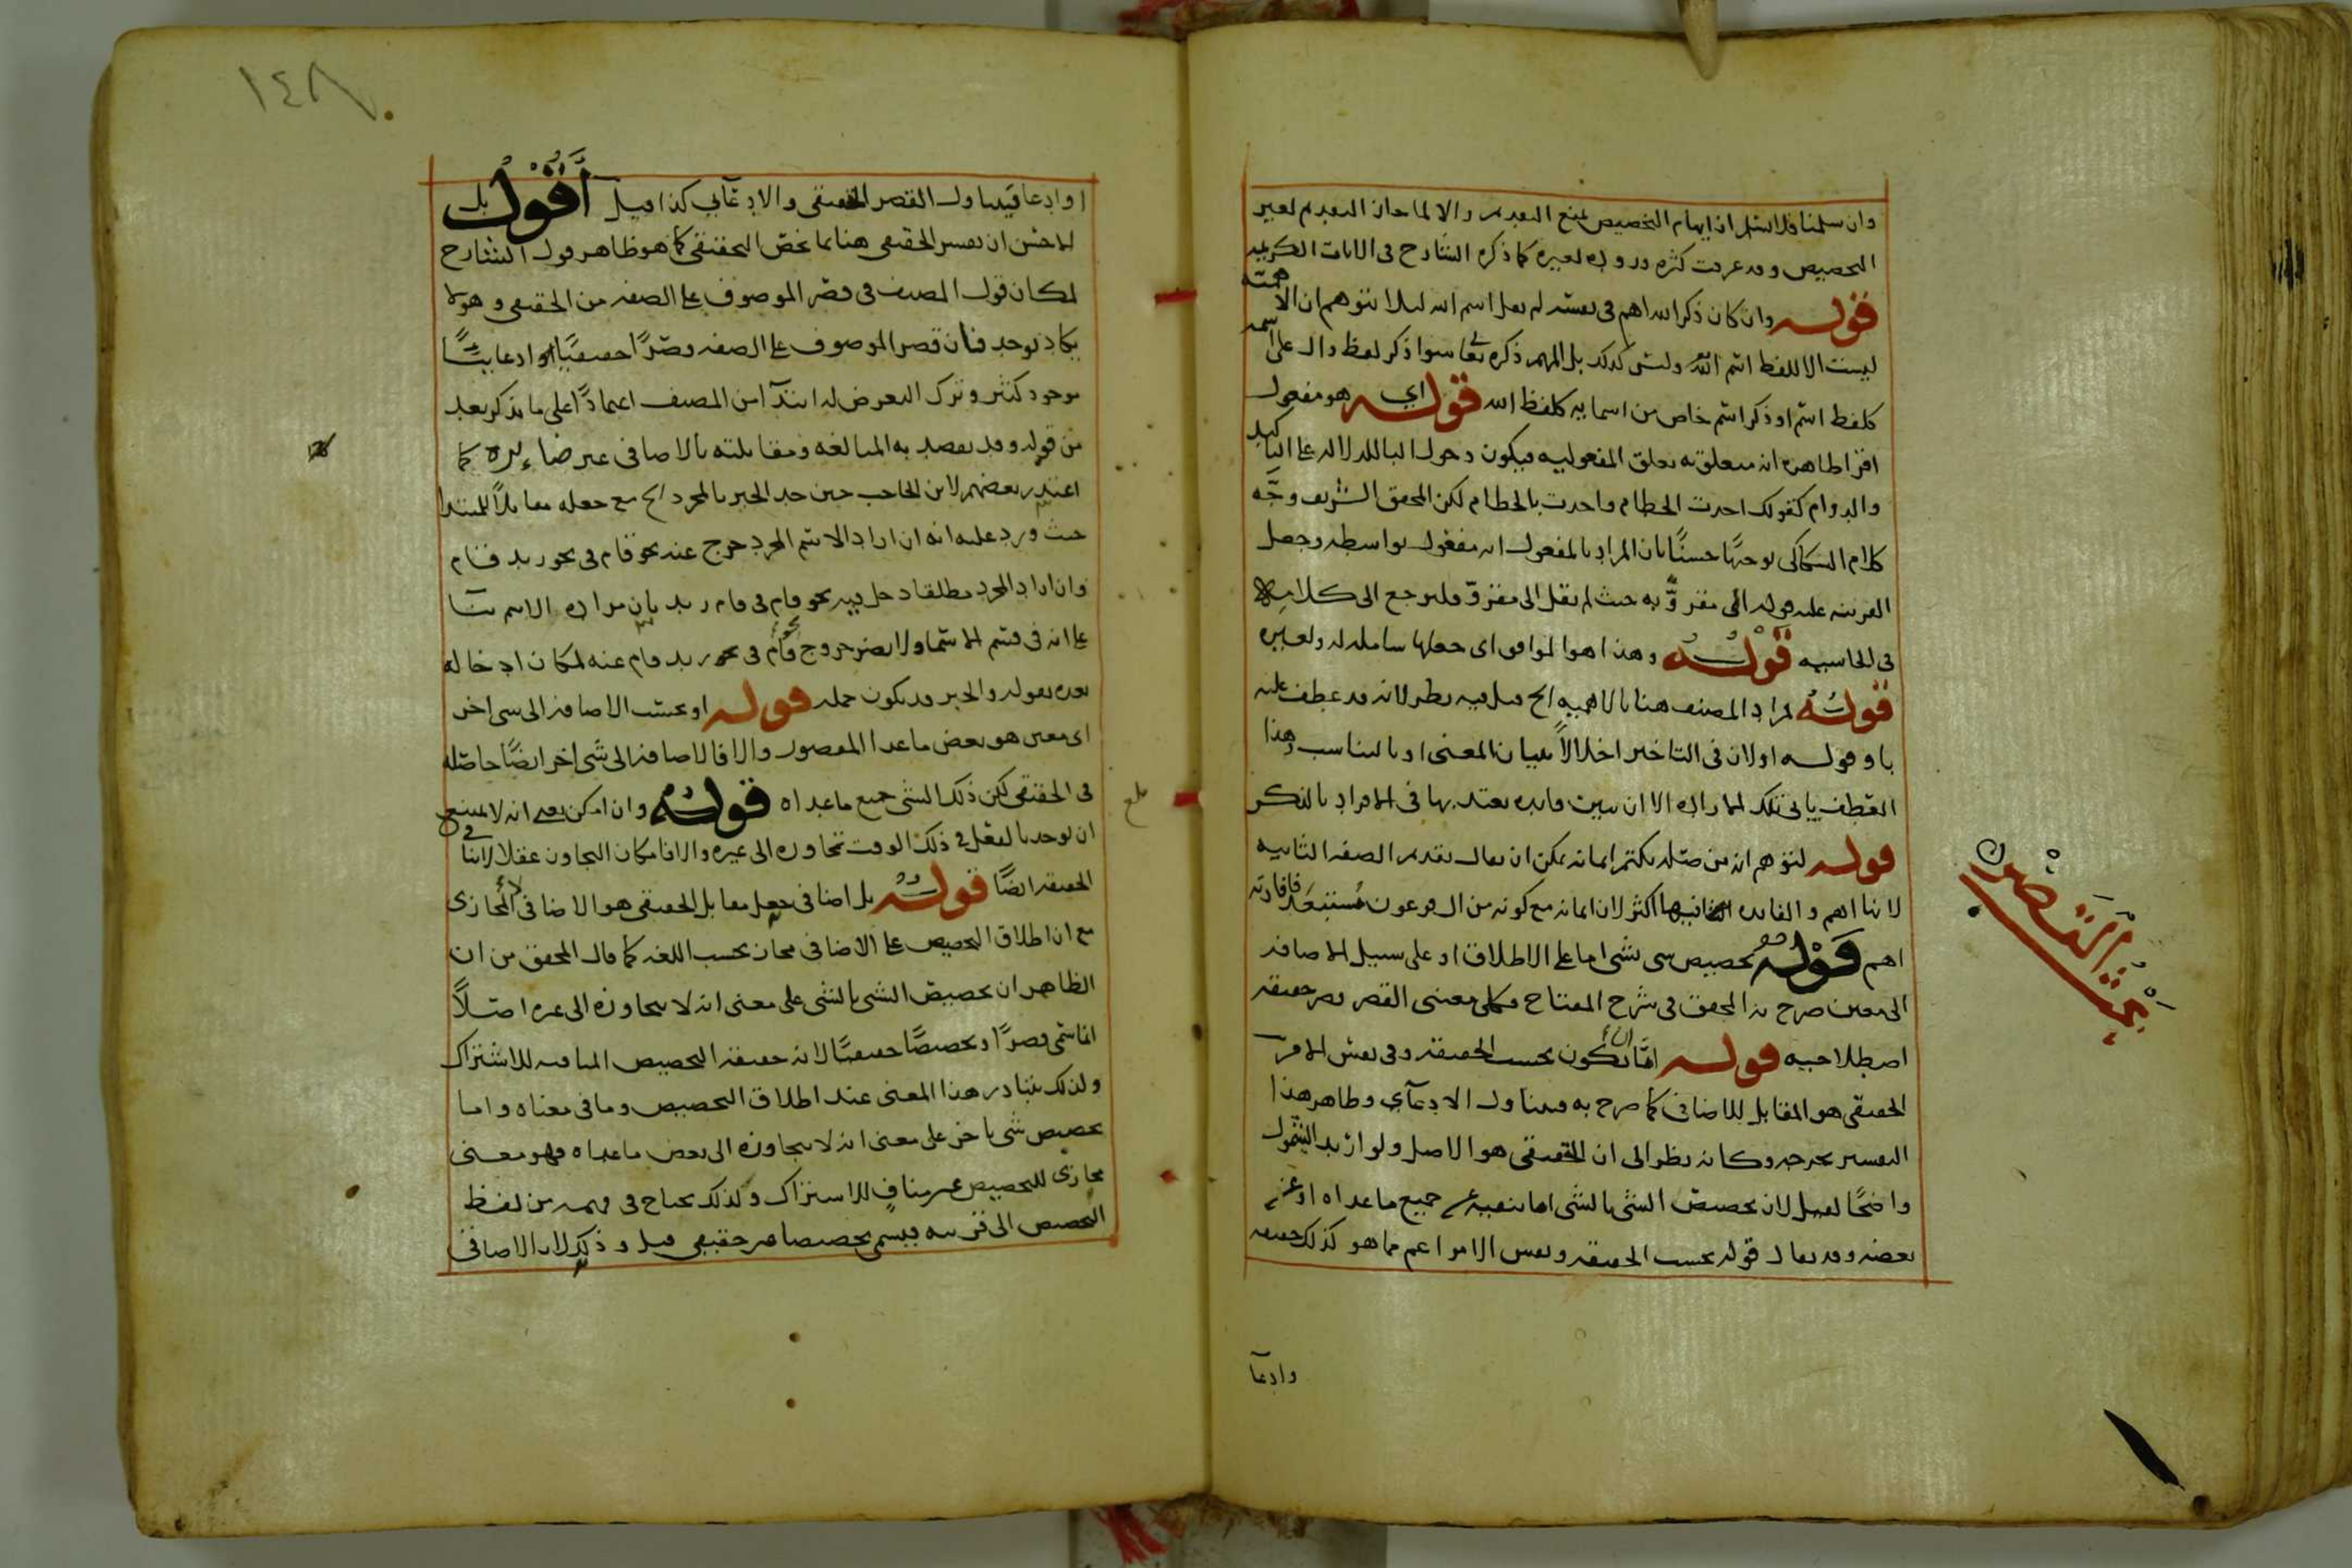 وان سلمنا فلا نسلم ان ايهام التخصيص يمنع التقديم والا لما جاز التقديم لغير
التخصيص وقد عرفت كثره وروده لغيره كما ذكره الشارح فى الايات الكريمه
قوله وان كان ذكر الله اهم فى نفسه لم يقل اسم الله ليلا يتوهم ان الاهميّه
ليست الا للفظ اسم الله وليس كذلك بل المهم ذكره تعا سوا ذكر لفظ دال على اسمه
كلفظ اسم او ذكر اسم خاص من اسمايه كلفظ الله قوله اي هو مفعول
اقرا ظاهره انه متعلق به تعلق المفعوليه فيكون دخول البا للدلاله على التاكيد
والدوام كقولك اخذت الخطام واخذت بالخطام لكن المحقق الشريف وجّه
كلام السكاكى توجيهًا حسنًا بان المراد بالمفعول انه مفعول بواسطه وجعل
القرينه عليه قوله الى مقروّ به حيث لم يقل الى مقروّ فليرجع الى كلامه
فى الحاشيه قوله وهذا هو الموافق اى جعلها شامله له ولغيره
قوله مراد المصنف هنا بالاهميه الخ قيل فيه نظر لانه قد عطف عليه
باو قوله او لان فى التاخير اخلالاً ببيان المعنى او بالتناسب وهذا
العطف يابى تلك الاراده الا ان يبين فايده يعتد بها فى الافراد بالذكر
قوله لتوهم انه من صله يكتم ايمانه يمكن ان يقال تقديم الصفه الثانيه
لانها اهم والفايده اكثر لان ايمانه مع كونه من ال فرعون مستبعد فافادته
اهم قوله تخصيص شى بشى اما على الاطلاق او على سبيل الاضافه
الى معين صرح به المحقق فى شرح المفتاح وكلى معنى القصر قصر حقيقه
اصطلاحيه قوله امّا ان يكون بحسب الحقيقه وفى نفس الامر
الحقيقى هو المقابل للاضافى كما صرح به فيتناول الادعآي وظاهر هذا
التفسير يخرجه وكانه نظر الى ان الحقيقى هو الاصل ولو اريد الشمول
واضحًا لقيل لان تخصيص الشى بالشى اما بنفيه عن جميع ماعداه او عن
بعضه وقد يقال قوله بحسب الحقيقه ونفس الامر اعم مما هو كذلك حقيقه
وادعآ
بحث القصر
١٤٨
او ادعا فيتناول القصر الحقيقى والادعآيى كذا قيل أقول بل
الاحسن ان يفسر الحقيقى هنا بما يخص التحقيقى كما هو ظاهر قول الشارح
لمكان قول المصنف فى قصر الموصوف على الصفه من الحقيقى وهو لا
يكاد يوجد فان قصر الموصوف على الصفه قصرًا حقيقيًا ادعاييًّا
موجود كثير وترك التعرض له ابتدآ من المصنف اعتمادًا على ما يذكر بعد
من قوله وقد يقصد به المبالغه ومقابلته بالاضافى غير ضايره كما
اعتذر بعضهم لابن الحاجب حين حد الخبر بالمجرد الخ مع جعله مقابلاً للمبتدا
حيث ورد عليه انه ان اراد الاسم المجرد خرج عنه نحو قام فى نحو زيد قام
وان اراد المجرد مطلقا دخل فيه نحو قام فى قام زيد بان مراده الاسم بنآ
على انه فى قسم الاسما ولا يضر خروج نحو قام فى نحو زيد قام عنه لمكان ادخاله
بعده بقوله والخبر قد يكون جمله قوله او بحسب الاضافه الى شى اخر
اى معين هو بعض ماعدا المقصور والا فالاضافه الى شى اخر ايضًا حاصله
فى الحقيقى لكن ذلك الشى جميع ماعداه قوله وان امكن يعنى انه لا يمتنع
ان يوجد بالفعل فى ذلك الوقت تجاوزه الى غيره والا فامكان التجاوز عقلا لا ينافى
الحقيقه ايضًا قوله بل اضافى جعل مقابل الحقيقى هو الاضافى لا المجازى
مع ان اطلاق التخصيص على الاضافى مجاز بحسب اللغه كما قال المحقق من ان
الظاهر ان تخصيص الشى بالشى على معنى انه لا يتجاوزه الى غيره اصلاً
انما سمى قصرًا او تخصيصًا حقيقيًّا لانه حقيقه التخصيص المنافيه للاشتراك
ولذلك يتبادر هذا المعنى عند اطلاق التخصيص وما فى معناه واما
تخصيص شى باخر على معنى انه لا يتجاوزه الى بعض ماعداه فهو معنى
مجازى للتخصيص غير منافٍ للاشتراك ولذلك يحتاج فى فهمه من لفظ
التخصيص الى قرينه فيسمى تخصيصا غير حقيقى قيل وذلك لان الاضافى
بلغ